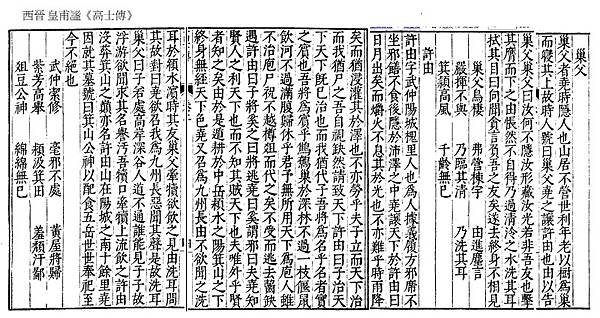 西晉 皇甫謐《高士傳》
巢父
巢父者堯時隱人也山居不營世利年老以樹爲巢
而寢其上故時人號曰巢父堯之讓許由也由以告
巢父巢父曰汝何不隱汝形藏汝光若非吾友也擊
其膺而下之由悵然不自得乃過清泠之水洗其耳
拭其目曰向聞貪言負吾之友矣遂去終身不相見
巢父鳥棲 弗營棟宇 由進塵言
嚴揮不與 乃臨其清 乃洗其耳
箕潁高風 千齡無已
許由
許由字武仲陽城槐里人也爲人據義履方邪席不
坐邪膳不食後隱於沛澤之中堯讓天下於許由曰
日月出矣而爝火不息其於光也不亦難乎時雨降
矣而猶浸灌其於澤也不亦勞乎夫子立而天下治
而我猶尸之吾自視缺然請致天下許由曰子治天
下天下既已治也而我猶代子吾將爲名乎名者實
之賔也吾將爲賔乎鷦鷯巢於深林不過一枝偃鼠
飲河不過滿腹歸休乎君予無所用天下爲庖人雖
不治庖尸祝不越樽俎而代之矣不受而逃去齧缺
遇許由曰子將奚之曰將逃堯曰奚謂邪曰夫堯知
賢人之利天下也而不知其賊天下也夫唯外乎賢
者知之矣由於是遁耕於中岳潁水之陽箕山之下
終身無經天下色堯又召爲九州長由不欲聞之洗
耳於潁水濱時其友巢父牽犢欲飲之見由洗耳問
其故對曰堯欲召我爲九州長惡聞其聲是故洗耳
巢父曰子若處高岸深谷人道不通誰能見子子故
浮游欲聞求其名譽汚吾犢口牽犢上流飲之許由
沒葬箕山之巔亦名許由山在陽城之南十餘里堯
因就其墓號曰箕山公神以配食五岳世世奉祀至
今不絶也
武仲潔修 毫邪不處 黃屋將歸
紫芳高舉 潁汲箕田 羞頮汗鄙
俎豆公神 綿綿無已